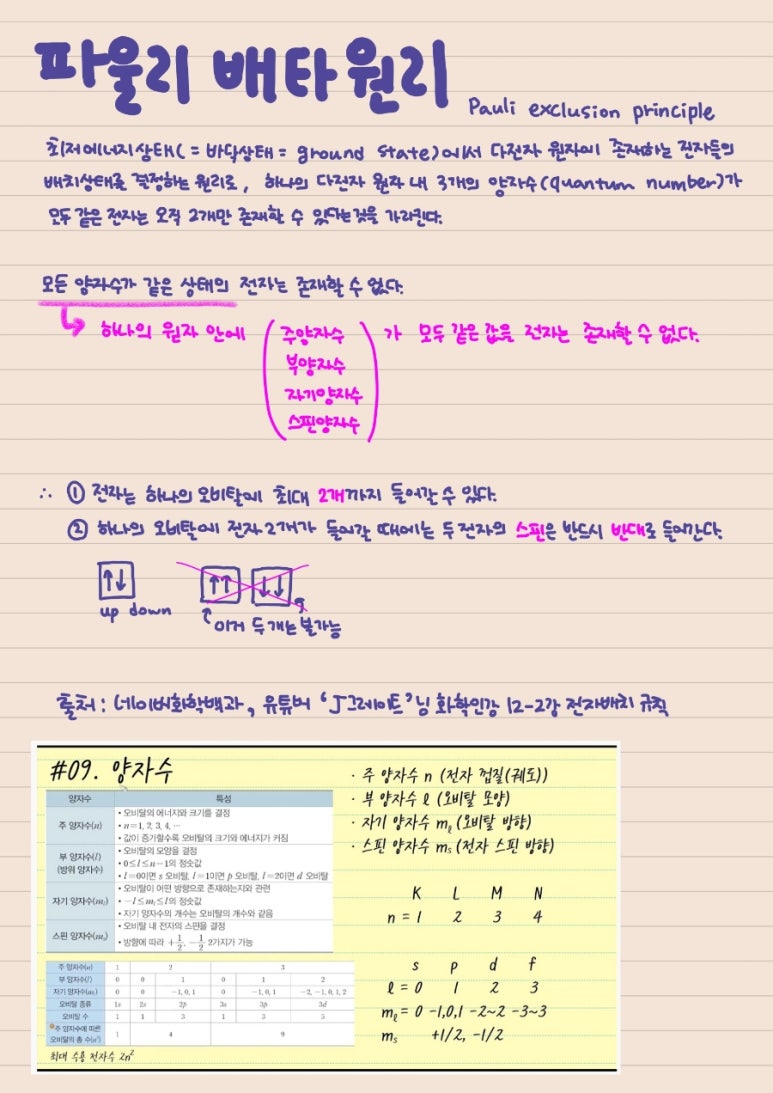 파울리 배타원리
Pauli exclusion principle
최저에너지상태( = 바닥상태 = ground state)에서 다전자 원자에 존재하는 전자들의
배치상태를 결정하는 원리로, 하나의 다전자 원자 내 3개의 양자수(quantum number)가
모두 같은 전자는 오직 2개만 존재할 수 있다는것을 가리킨다.
모든 양자수가 같은 상태의 전자는 존재할 수 없다.
↳ 하나의 원자 안에 ( 주양자수 ) 가 모두 같은 값을 전자는 존재할 수 없다.
부양자수
자기양자수
스핀양자수
∴ ① 전자는 하나의 오비탈에 최대 2개까지 들어갈 수 있다.
② 하나의 오비탈에 전자 2개가 들어갈 때에는 두 전자의 스핀은 반드시 반대로 들어간다.
↑↓ ↑↑ ↓↓
up down
이거 두개는 불가능
출처 : 네이버화학백과, 유튜버 'J그레이트'님 화학인강 12-2강 전자배치 규칙
#09. 양자수
양자수 특성
주 양자수(n)
• 오비탈의 에너지와 크기를 결정
• n=1, 2, 3, 4, ⋯
• 값이 증가할수록 오비탈의 크기와 에너지가 커짐
부 양자수(l)
(방위 양자수)
• 오비탈의 모양을 결정
• 0≤l≤n−1의 정숫값
• l=0이면 s 오비탈, l=1이면 p 오비탈, l=2이면 d 오비탈
자기 양자수(mₗ)
• 오비탈이 어떤 방향으로 존재하는지와 관련
• −l≤mₗ≤l의 정숫값
• 자기 양자수의 개수는 오비탈의 개수와 같음
스핀 양자수(mₛ)
• 오비탈 내 전자의 스핀을 결정
• 방향에 따라 +1/2, −1/2 2가지가 가능
주 양자수(n) 1 2 3
부 양자수(l) 0 0 1 0 1 2
자기 양자수(mₗ) 0 0 −1, 0, 1 0 −1, 0, 1 −2, −1, 0, 1, 2
오비탈 종류 1s 2s 2p 3s 3p 3d
오비탈 수 1 1 3 1 3 5
주 양자수에 따른
오비탈의 총 수(n²) 1 4 9
최대 수용 전자수 2n²
· 주 양자수 n (전자 껍질(궤도))
· 부 양자수 ℓ (오비탈 모양)
· 자기 양자수 mℓ (오비탈 방향)
· 스핀 양자수 ms (전자 스핀 방향)
K L M N
n = 1 2 3 4
s p d f
ℓ = 0 1 2 3
mℓ = 0 -1,0,1 -2~2 -3~3
ms +1/2, -1/2